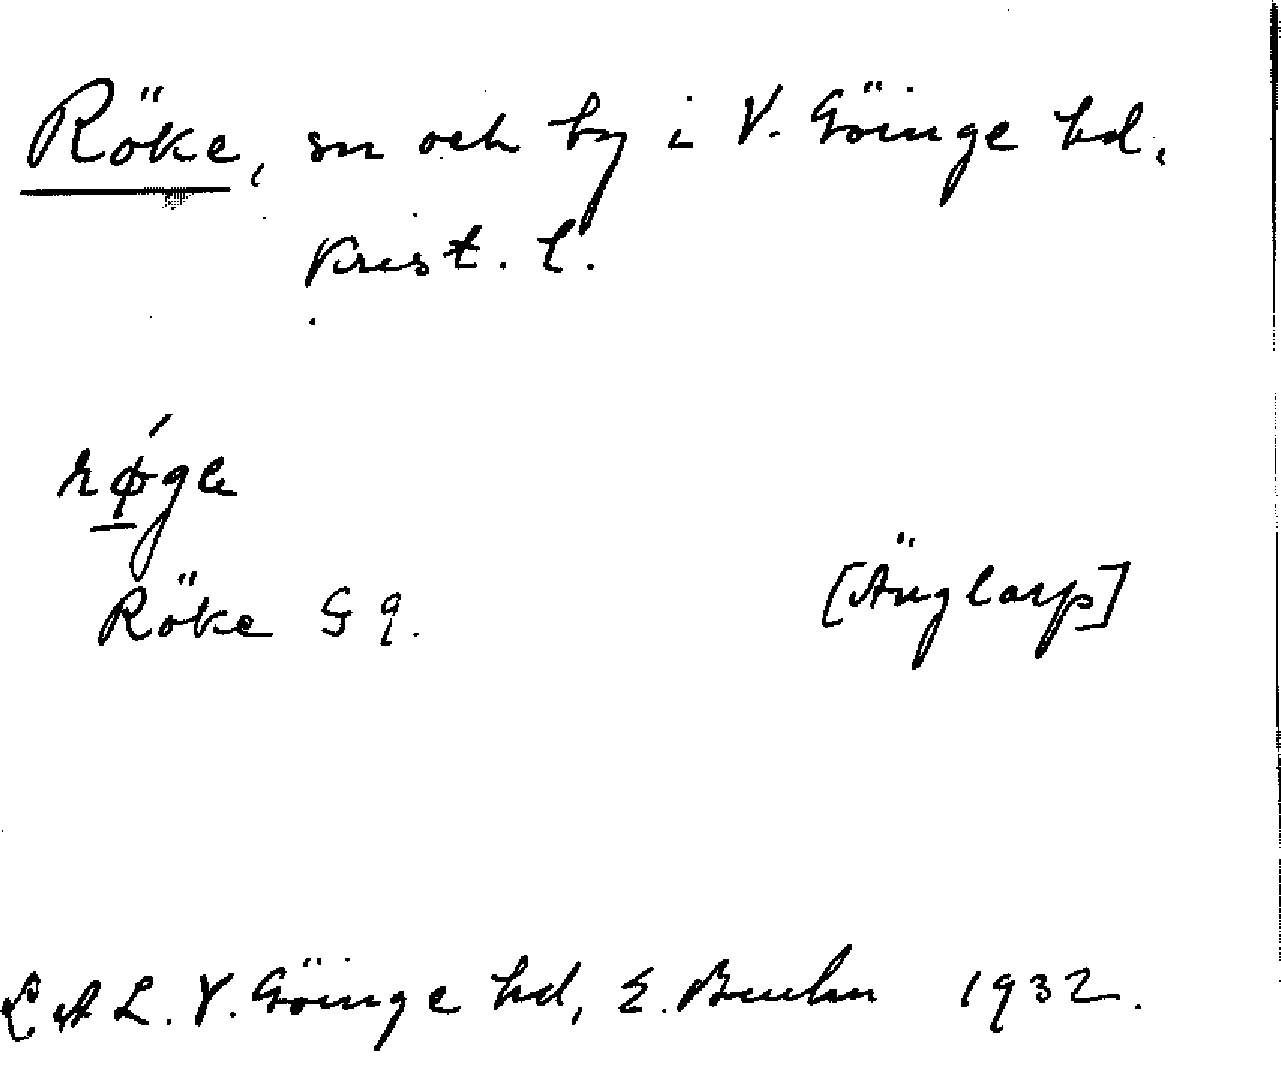 Röke, sn och by i V. Göinge hd,
Krist. l.
rǿge
Röke G 9. [Änglarp]
LAL. V. Göinge hd, E. Bruhn 1932.